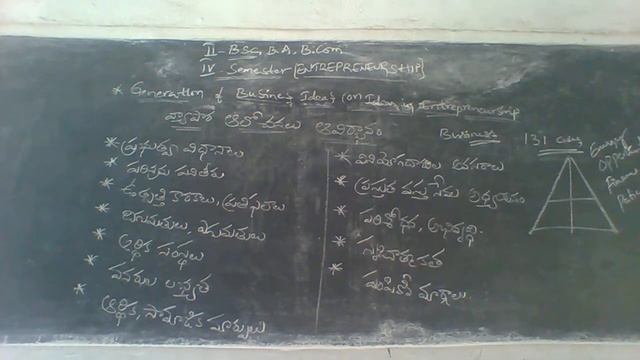 II - BSC, B.A, B.Com
IV - Semester [ENTREPRENEURSHIP]
* Generation of Business Ideas (on Ideas in Entrepreneurship
వ్యాపార ఆలోచనలు ఆవిర్భావం
Business
* ప్రభుత్వ విధానాలు
* పరిశ్రమ
* ఉత్పత్తి కారకాలు, ప్రతిఫలాలు
* దిగుమతులు, ఎగుమతులు
* ఆర్థిక సంస్థలు
* వనరుల లభ్యత
* ఆర్థిక, సామాజిక మార్పులు
* వినియోగదారుల అవసరాలు
* ప్రస్తుత వస్తు సేవల
* పరిశోధన, అభివృద్ధి.
* సృజనాత్మకత
* పంపిణీ మార్గాలు.